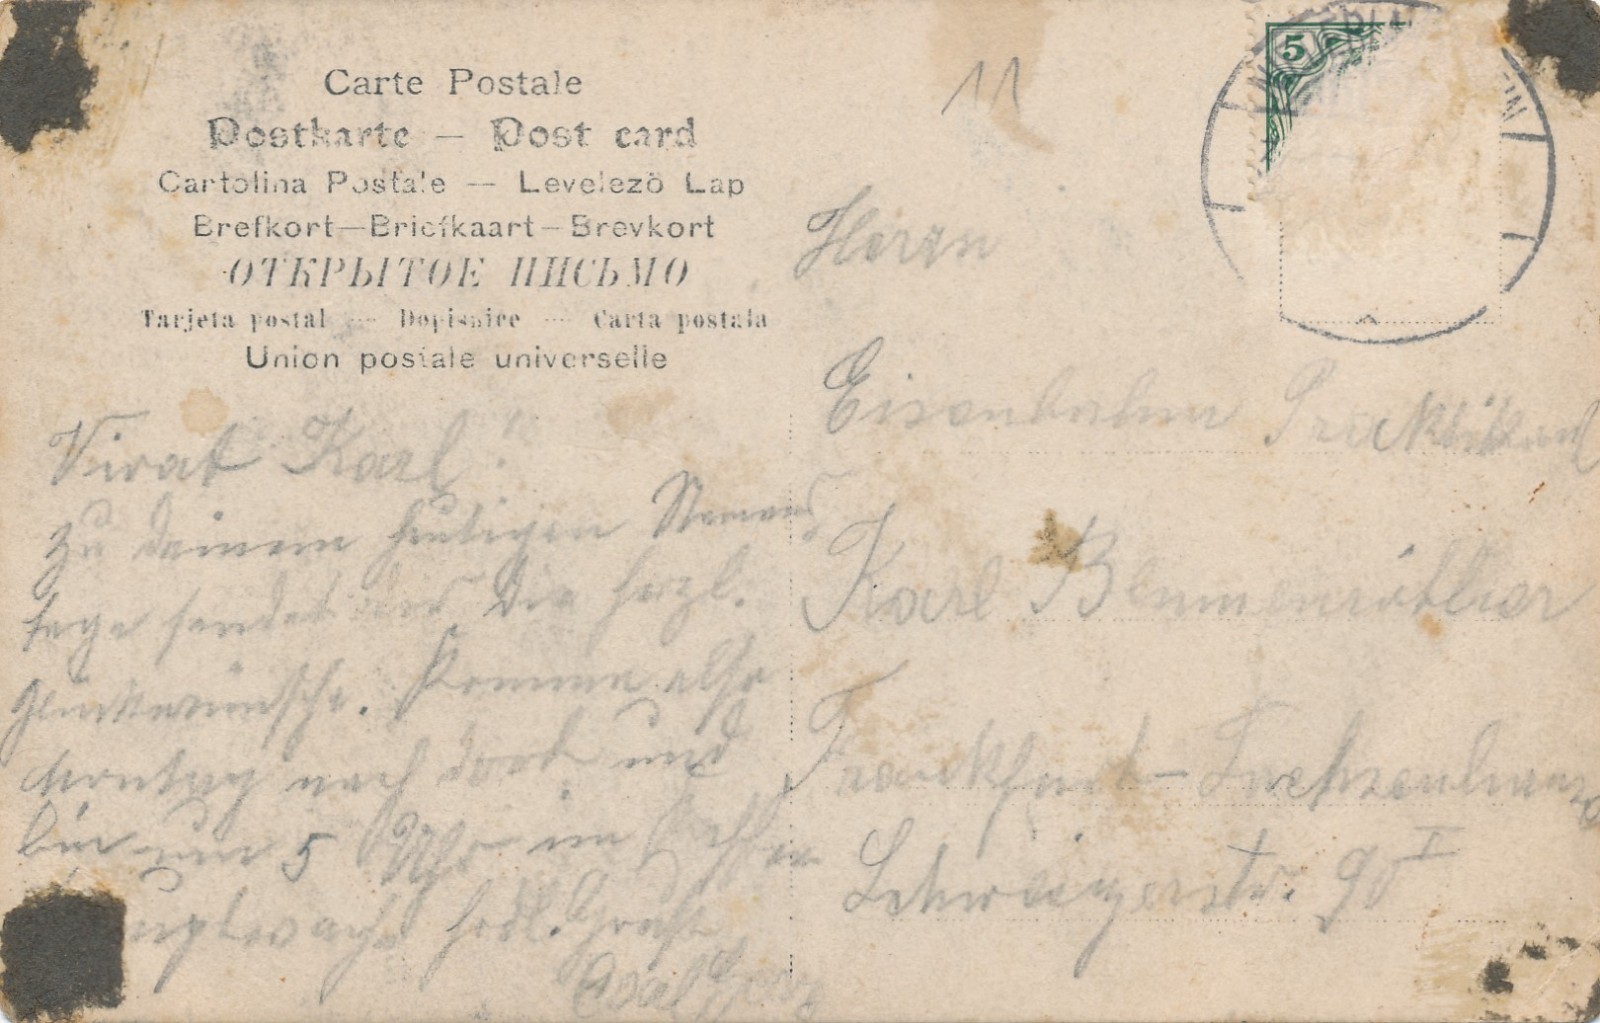 Carte Postale
Postkarte — Post card
Cartolina Postale — Levelező Lap
Brefkort—Briefkaart—Brevkort
ОТКРЫТОЕ ПИСЬМО
Tarjeta postal — Dopisnice — Carta postala
Union postale universelle
11
5
Herrn
Eisenbahn Praktikant
Karl
Frankfurt-Sachsenhausen
Schweizerstr. 90 I
Vivat Karl!
Zu deinem heutigen Namens
tage sendet dir die herzl.
Glückwünsche. Komme also
Montag nach dort und
bin um 5 Uhr im
herzl. Gruß